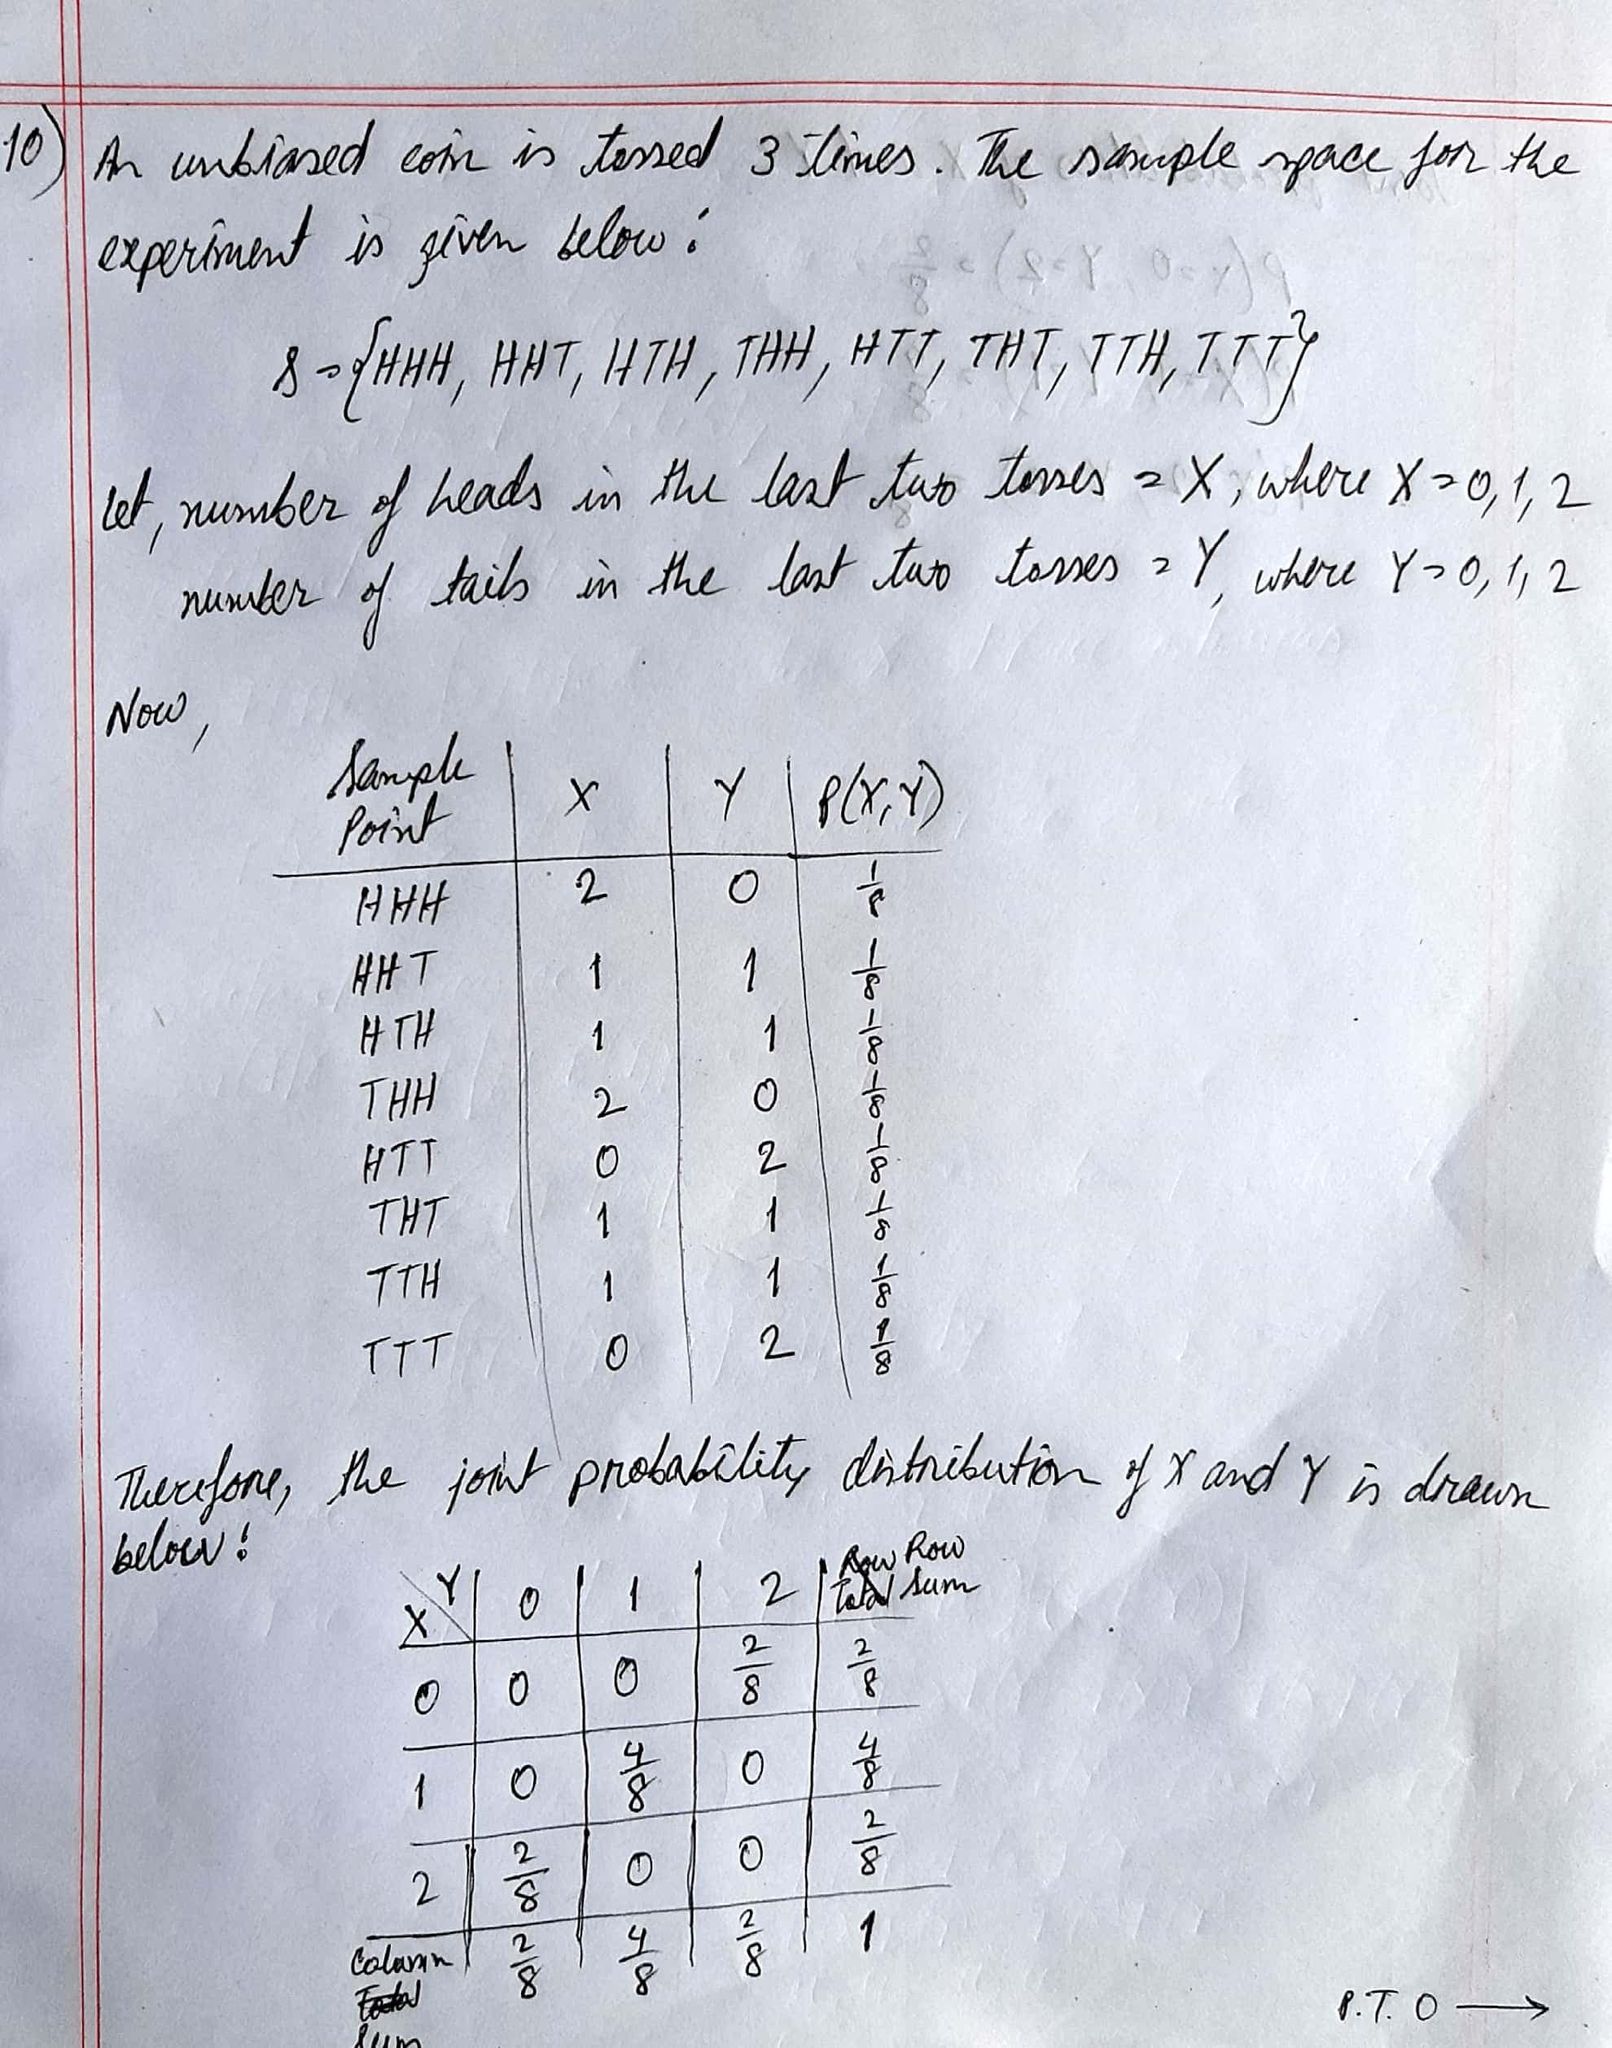 10) An unbiased coin is tossed 3 times. The sample space for the
experiment is given below:
S = {HHH, HHT, HTH, THH, HTT, THT, TTH, TTT}
Let, number of heads in the last two tosses = X, where X = 0, 1, 2
number of tails in the last two tosses = Y, where Y = 0, 1, 2
Now,
Sample Point | X | Y | P(X, Y)
HHH 2 0 1/8
HHT 1 1 1/8
HTH 1 1 1/8
THH 2 0 1/8
HTT 0 2 1/8
THT 1 1 1/8
TTH 1 1 1/8
TTT 0 2 1/8
Therefore, the joint probability distribution of X and Y is drawn
below:
X \ Y 0 1 2 Row Sum
0 0 0 2/8 2/8
1 0 4/8 0 4/8
2 2/8 0 0 2/8
Column Sum 2/8 4/8 2/8 1
P.T.O →